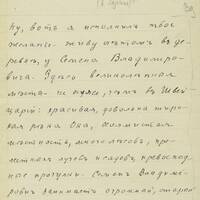 Ну, вотъ я исполнилъ твое
желаніе живу лѣтомъ въ де-
ревнѣ, у Семена Владиміро-
вича. Здѣсь великолѣпная
мѣста не хуже, чѣмъ въ Швей-
царіи: красивая, довольно широ-
кая рѣка Ока, холмистая
мѣстность, много лѣсовъ, пре-
лестныхъ луговъ и садовъ, превосход-
ныя прогулки. Семенъ Владимі-
ровичъ занимаетъ огромный, старый